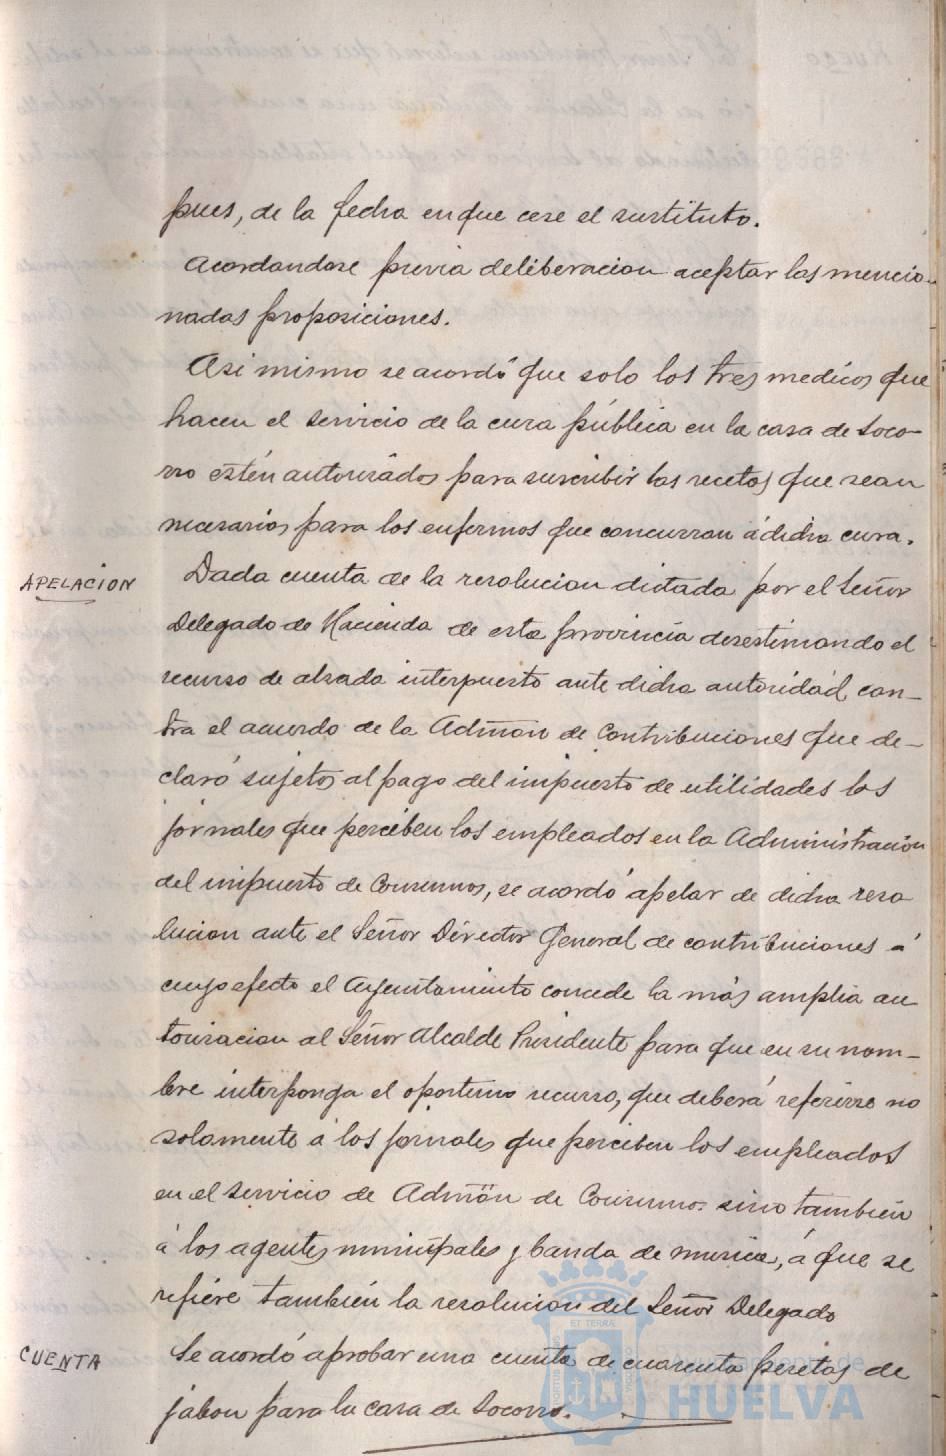 pues, de la fecha en que cese el sustituto.
Acordandose previa deliberacion aceptar las mencio-
nadas proposiciones.
Asi mismo se acordó que solo los tres medicos que
hacen el servicio de la cura pública en la casa de Soco-
rro estén autorizados para suscribir las recetas que sean
necesarias para los enfermos que concurran á dicha cura.
APELACION
Dada cuenta de la resolucion dictada por el Señor
Delegado de Hacienda de esta provincia desestimando el
recurso de alzada interpuesto ante dicha autoridad con-
tra el acuerdo de la Admon de Contribuciones que de-
claró sujetos al pago del impuesto de utilidades los
jornales que perciben los empleados en la Administracion
del impuesto de Consumos, se acordó apelar de dicha reso
lucion ante el Señor Director General de contribuciones á
cuyo efecto el Ayuntamiento concede la más amplia au
torizacion al Señor Alcalde Presidente para que en su nom-
bre interponga el oportuno recurso, que deberá referirse no
solamente á los jornales que perciben los empleados
en el servicio de Admón de Consumos sino también
á los agentes municipales y banda de musica, á que se
refiere también la resolucion del Señor Delegado
CUENTA
Se acordó aprobar una cuenta de cuarenta pesetas de
jabon para la casa de Socorro.
ET TERRA
Ayuntamiento de
HUELVA